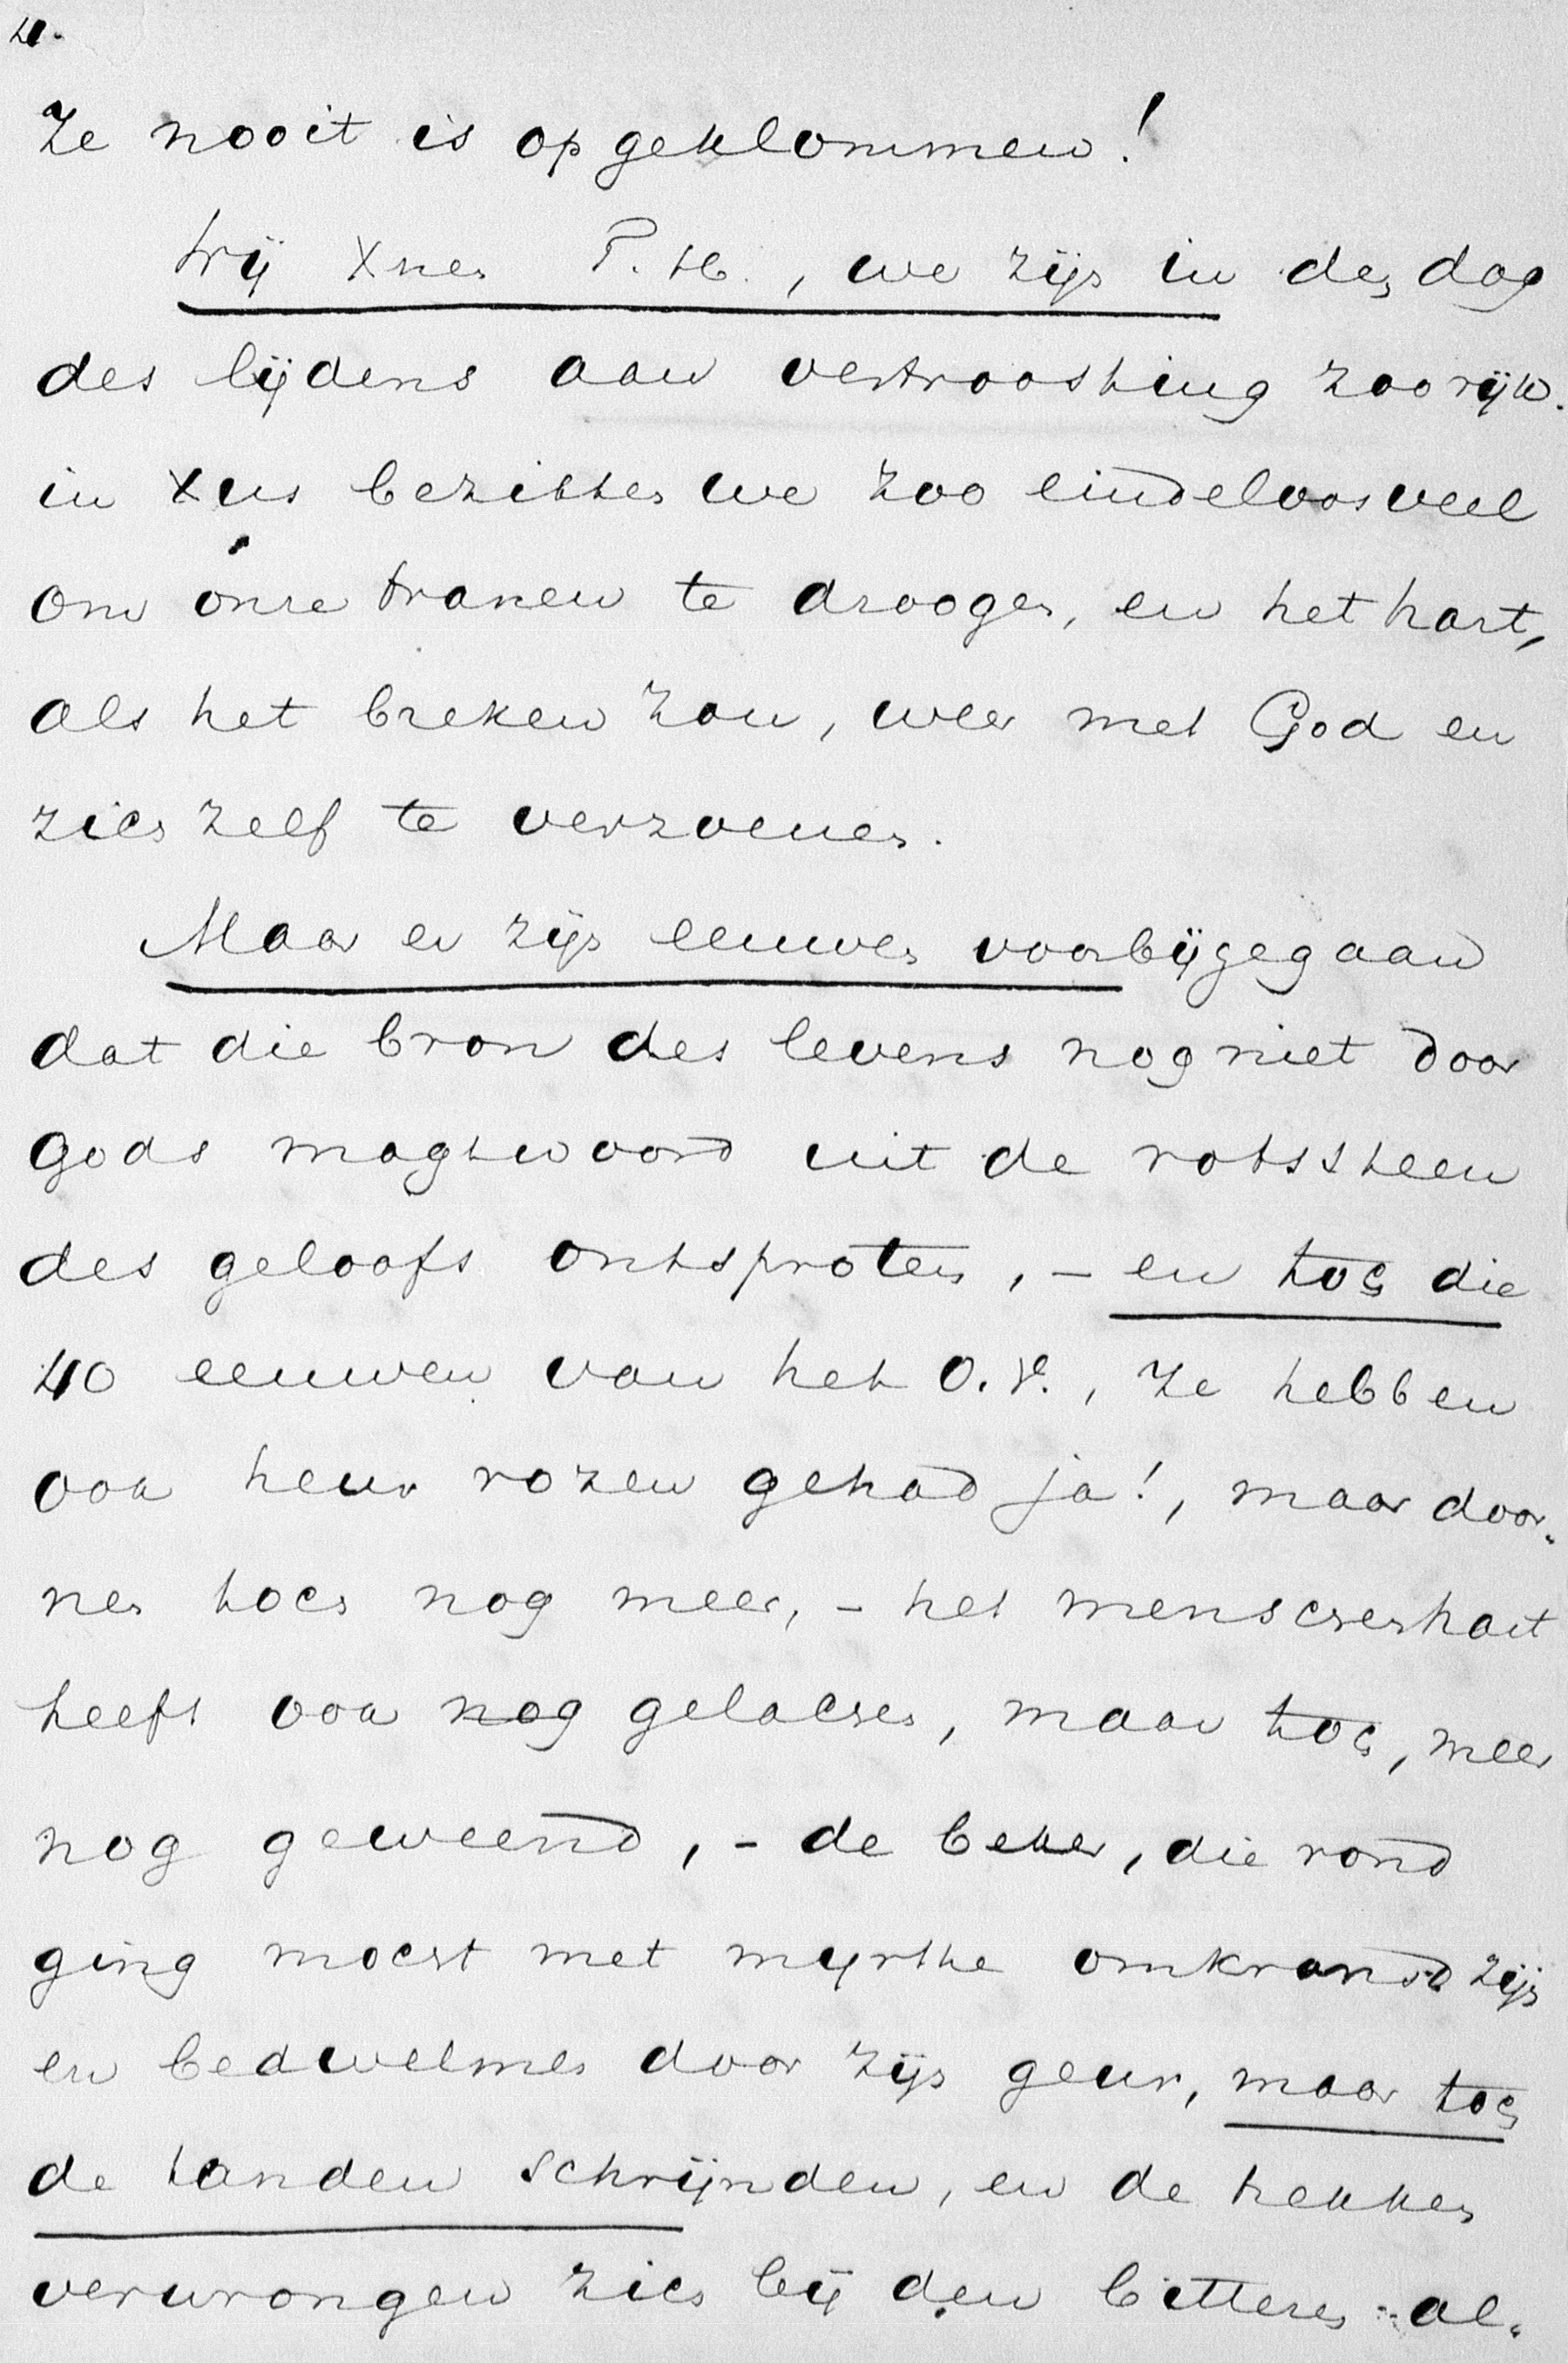 4.
Ze nooit is opgeklommen!
Wij Xnen T. H., we zijn in den dag
des lijdens aan vertroosting zoo rijk.
in Xus bezitten we zoo eindeloos veel
om onze tranen te droogen, en het hart,
als het breken zou, weer met God en
zich zelf te verzoenen.
Maar er zijn eeuwen voorbijgegaan
dat die bron des levens nog niet door
Gods magtwoord uit de rotssteen
des geloofs ontsproten, – en toch die
40 eeuwen van het O.V., ze hebben
ook heur rozen gehad ja!, maar door-
nen toch nog meer, – het menschenhart
heeft ook nog gelachen, maar toch, meer
nog geweend, – de beker, die rond
ging moest met myrthe omkransd zijn
en bedwelmen door zijn geur, maar toch
de tanden schrijnden, en de trekken
verwrongen zich bij den bitteren al-